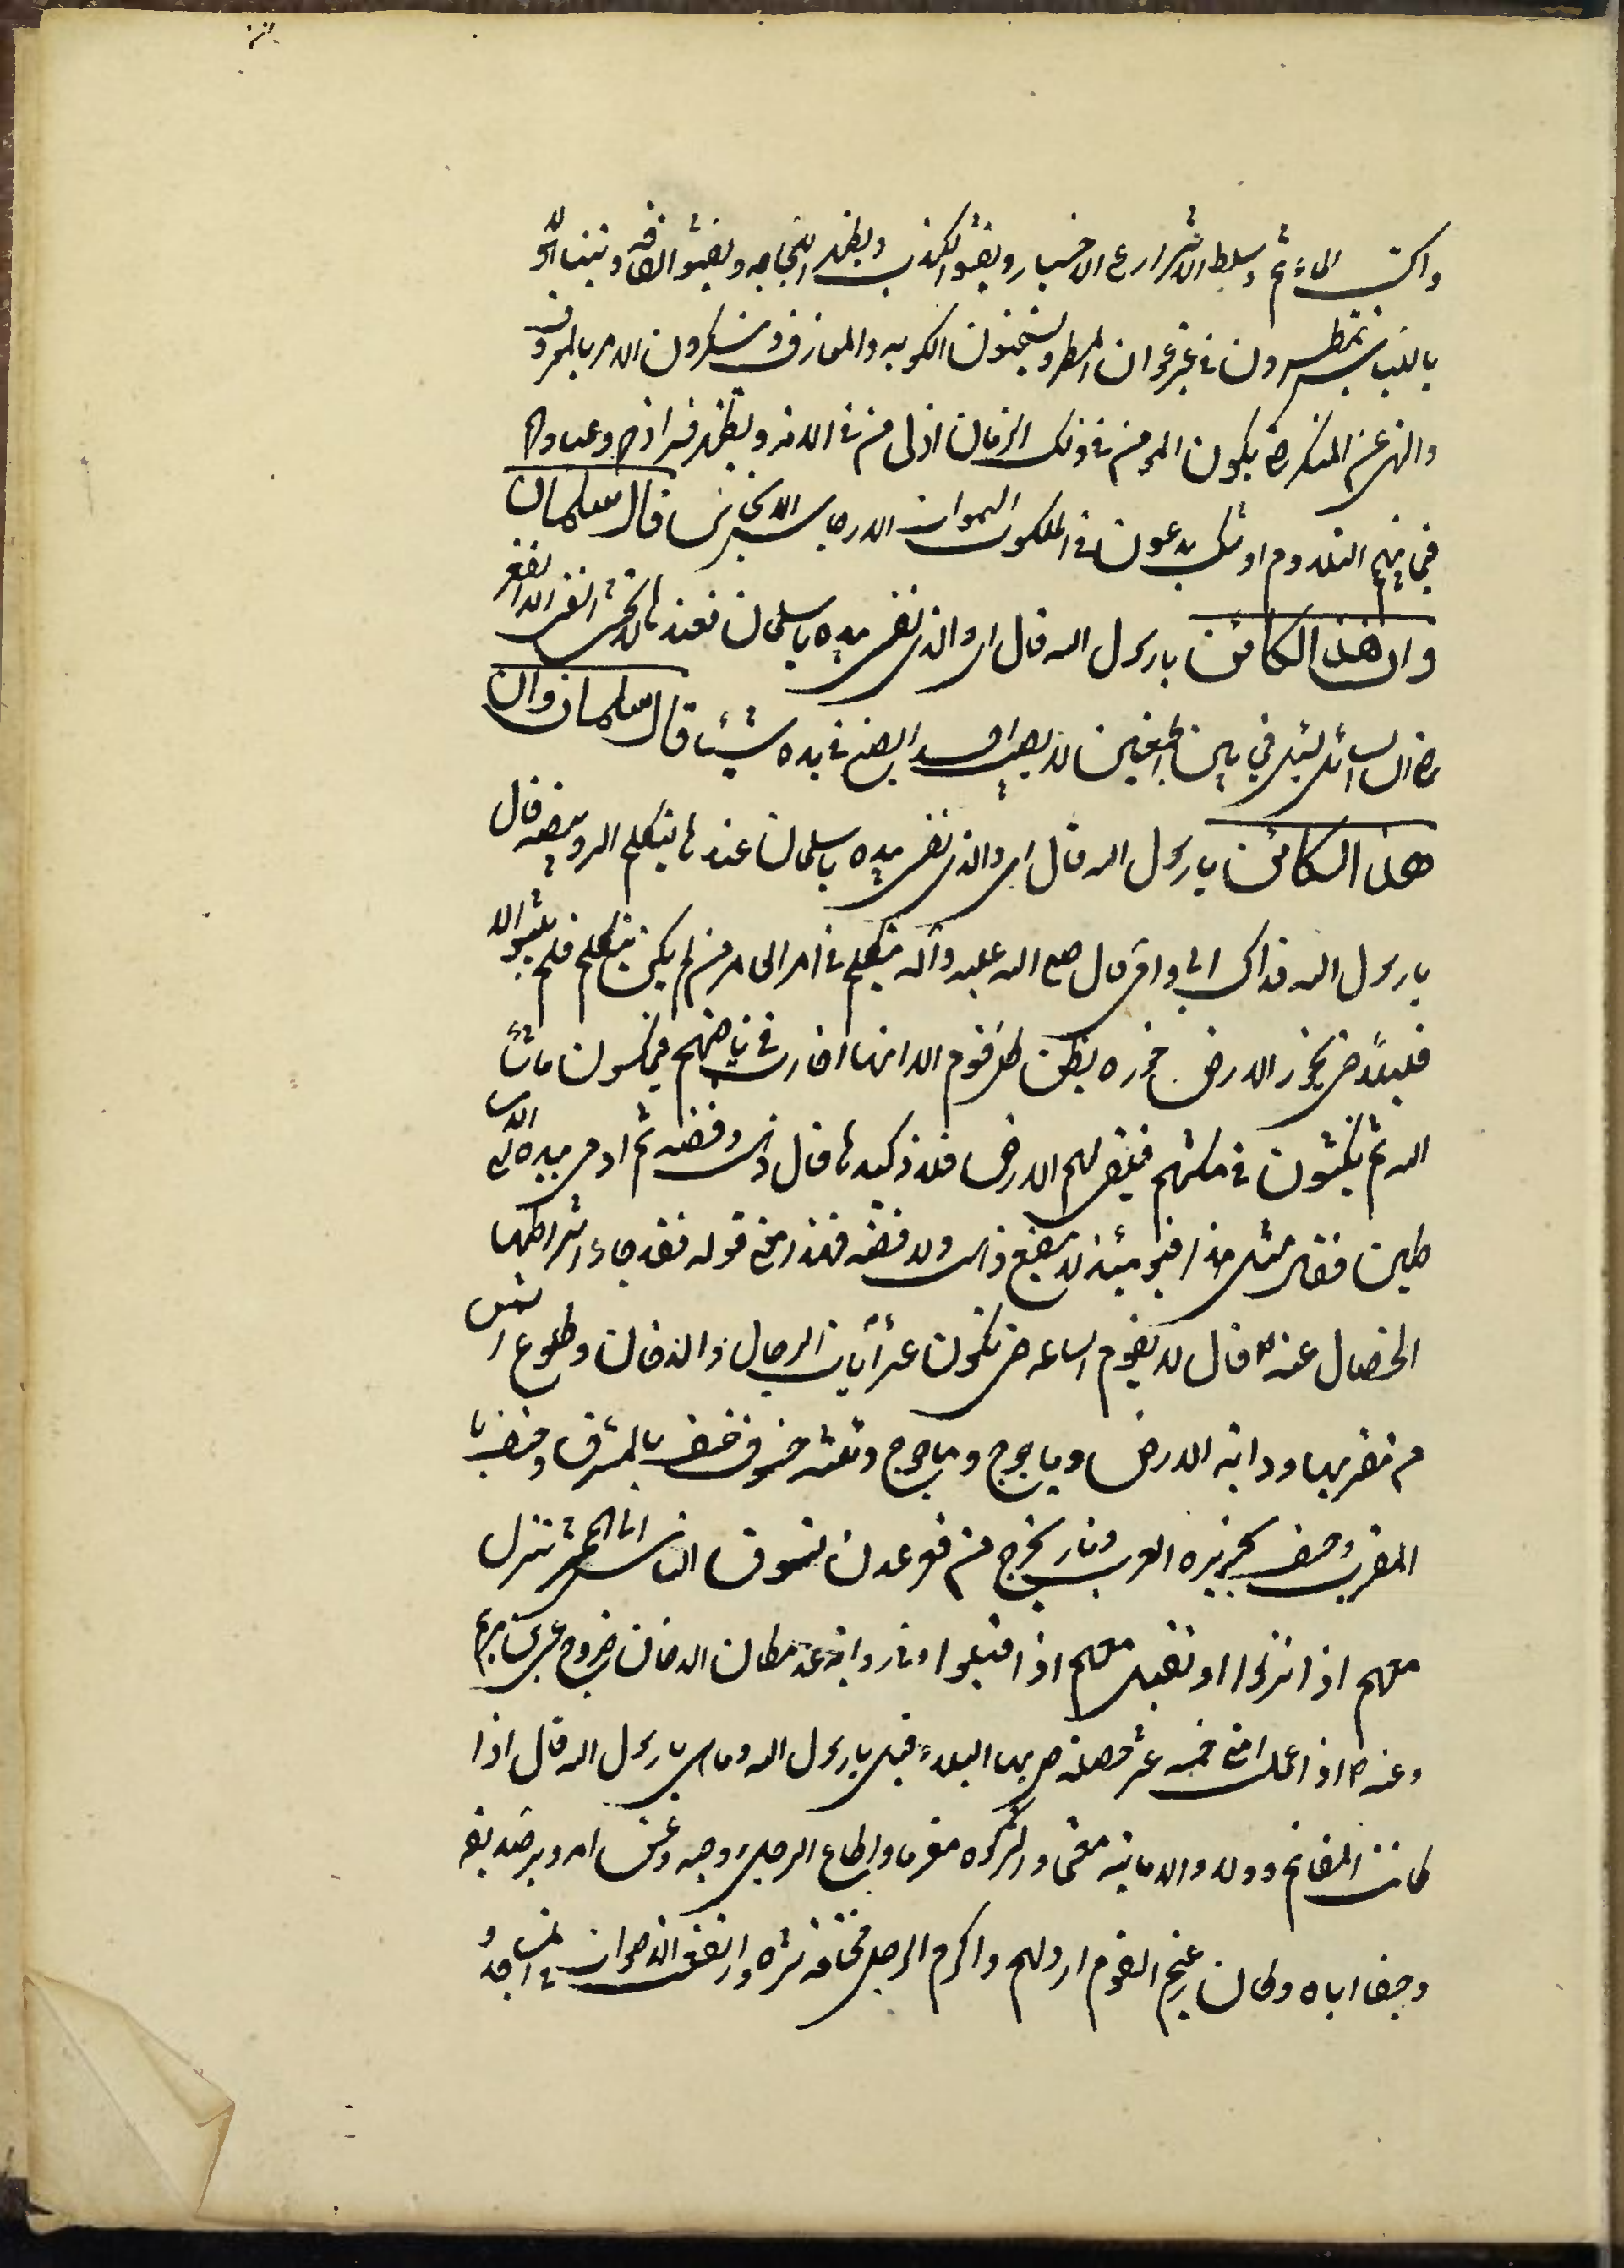 واكتسب المآثم وسلط الاشرار على الاخيار ويفشو الكذب ويظهر اللجاجه ويفشو الفاقه ويتباهون
باللباس ويمطرون في غير اوان المطر ويستحسنون الكوبه والمعازف وينكرون الامر بالمعروف
والنهي عن المنكر حتى يكون المومن في ذلك الزمان اذل من في الامه ويظهر قراؤهم وعبادهم
فيما بينهم التلاوم اولئك يدعون في ملكوت السموات الارجاس الانجاس قال سلمان
وان هذا لكائن يا رسول الله قال اى والذى نفسى بيده يا سلمان فعندها لا يخشى الغنى الا الفقر
حتى ان السائل ليسئل فيما بين الجمعتين لا يصيب احدا يضع في يده شيئا قال سلمان وان
هذا لكائن يا رسول الله قال اى والذى نفسى بيده يا سلمان عندها يتكلم الرويبضه قال
يا رسول الله فداك ابى وامى قال صلى الله عليه وآله يتكلم في امر العامه من لم يكن يتكلم فلم يلبثوا الا
قليلاً حتى تخور الارض خوره يظن كل قوم الا انها خارت في ناحيتهم فيمكثون ما شاء
الله ثم ينكتون في مكثهم فتلقى لهم الارض افلاذ كبدها قال ذهب وفضه ثم اومى بيده الى الاساطين
فقال مثل هذا فيومئذ لا ينفع ذهب ولا فضه فهذا معنى قوله فقد جاء اشراطها
الخصال عنه ص قال لا تقوم الساعه حتى تكون عشر آيات الدجال والدخان وطلوع الشمس
من مغربها ودابه الارض وياجوج وماجوج وثلثه خسوف خسف بالمشرق وخسف با
لمغرب وخسف بجزيره العرب ونار تخرج من قعر عدن تسوق الناس الى المحشر تنزل
معهم اذا نزلوا وتقبل معهم اذا اقبلوا وفي روايه عد مكان الدخان خروج عيسى بن مريم
وعنه ص اذا عملت امتى خمسه عشر خصله حل بها البلاء قيل يا رسول الله وما هى يا رسول الله قال اذا
كانت المغانم دولا والامانه مغنما والزكوه مغرما واطاع الرجل زوجه وعق امه وبر صديقه
وجفا اباه وكان زعيم القوم ارذلهم واكرم الرجل مخافه شره وارتفعت الاصوات في المساجد و